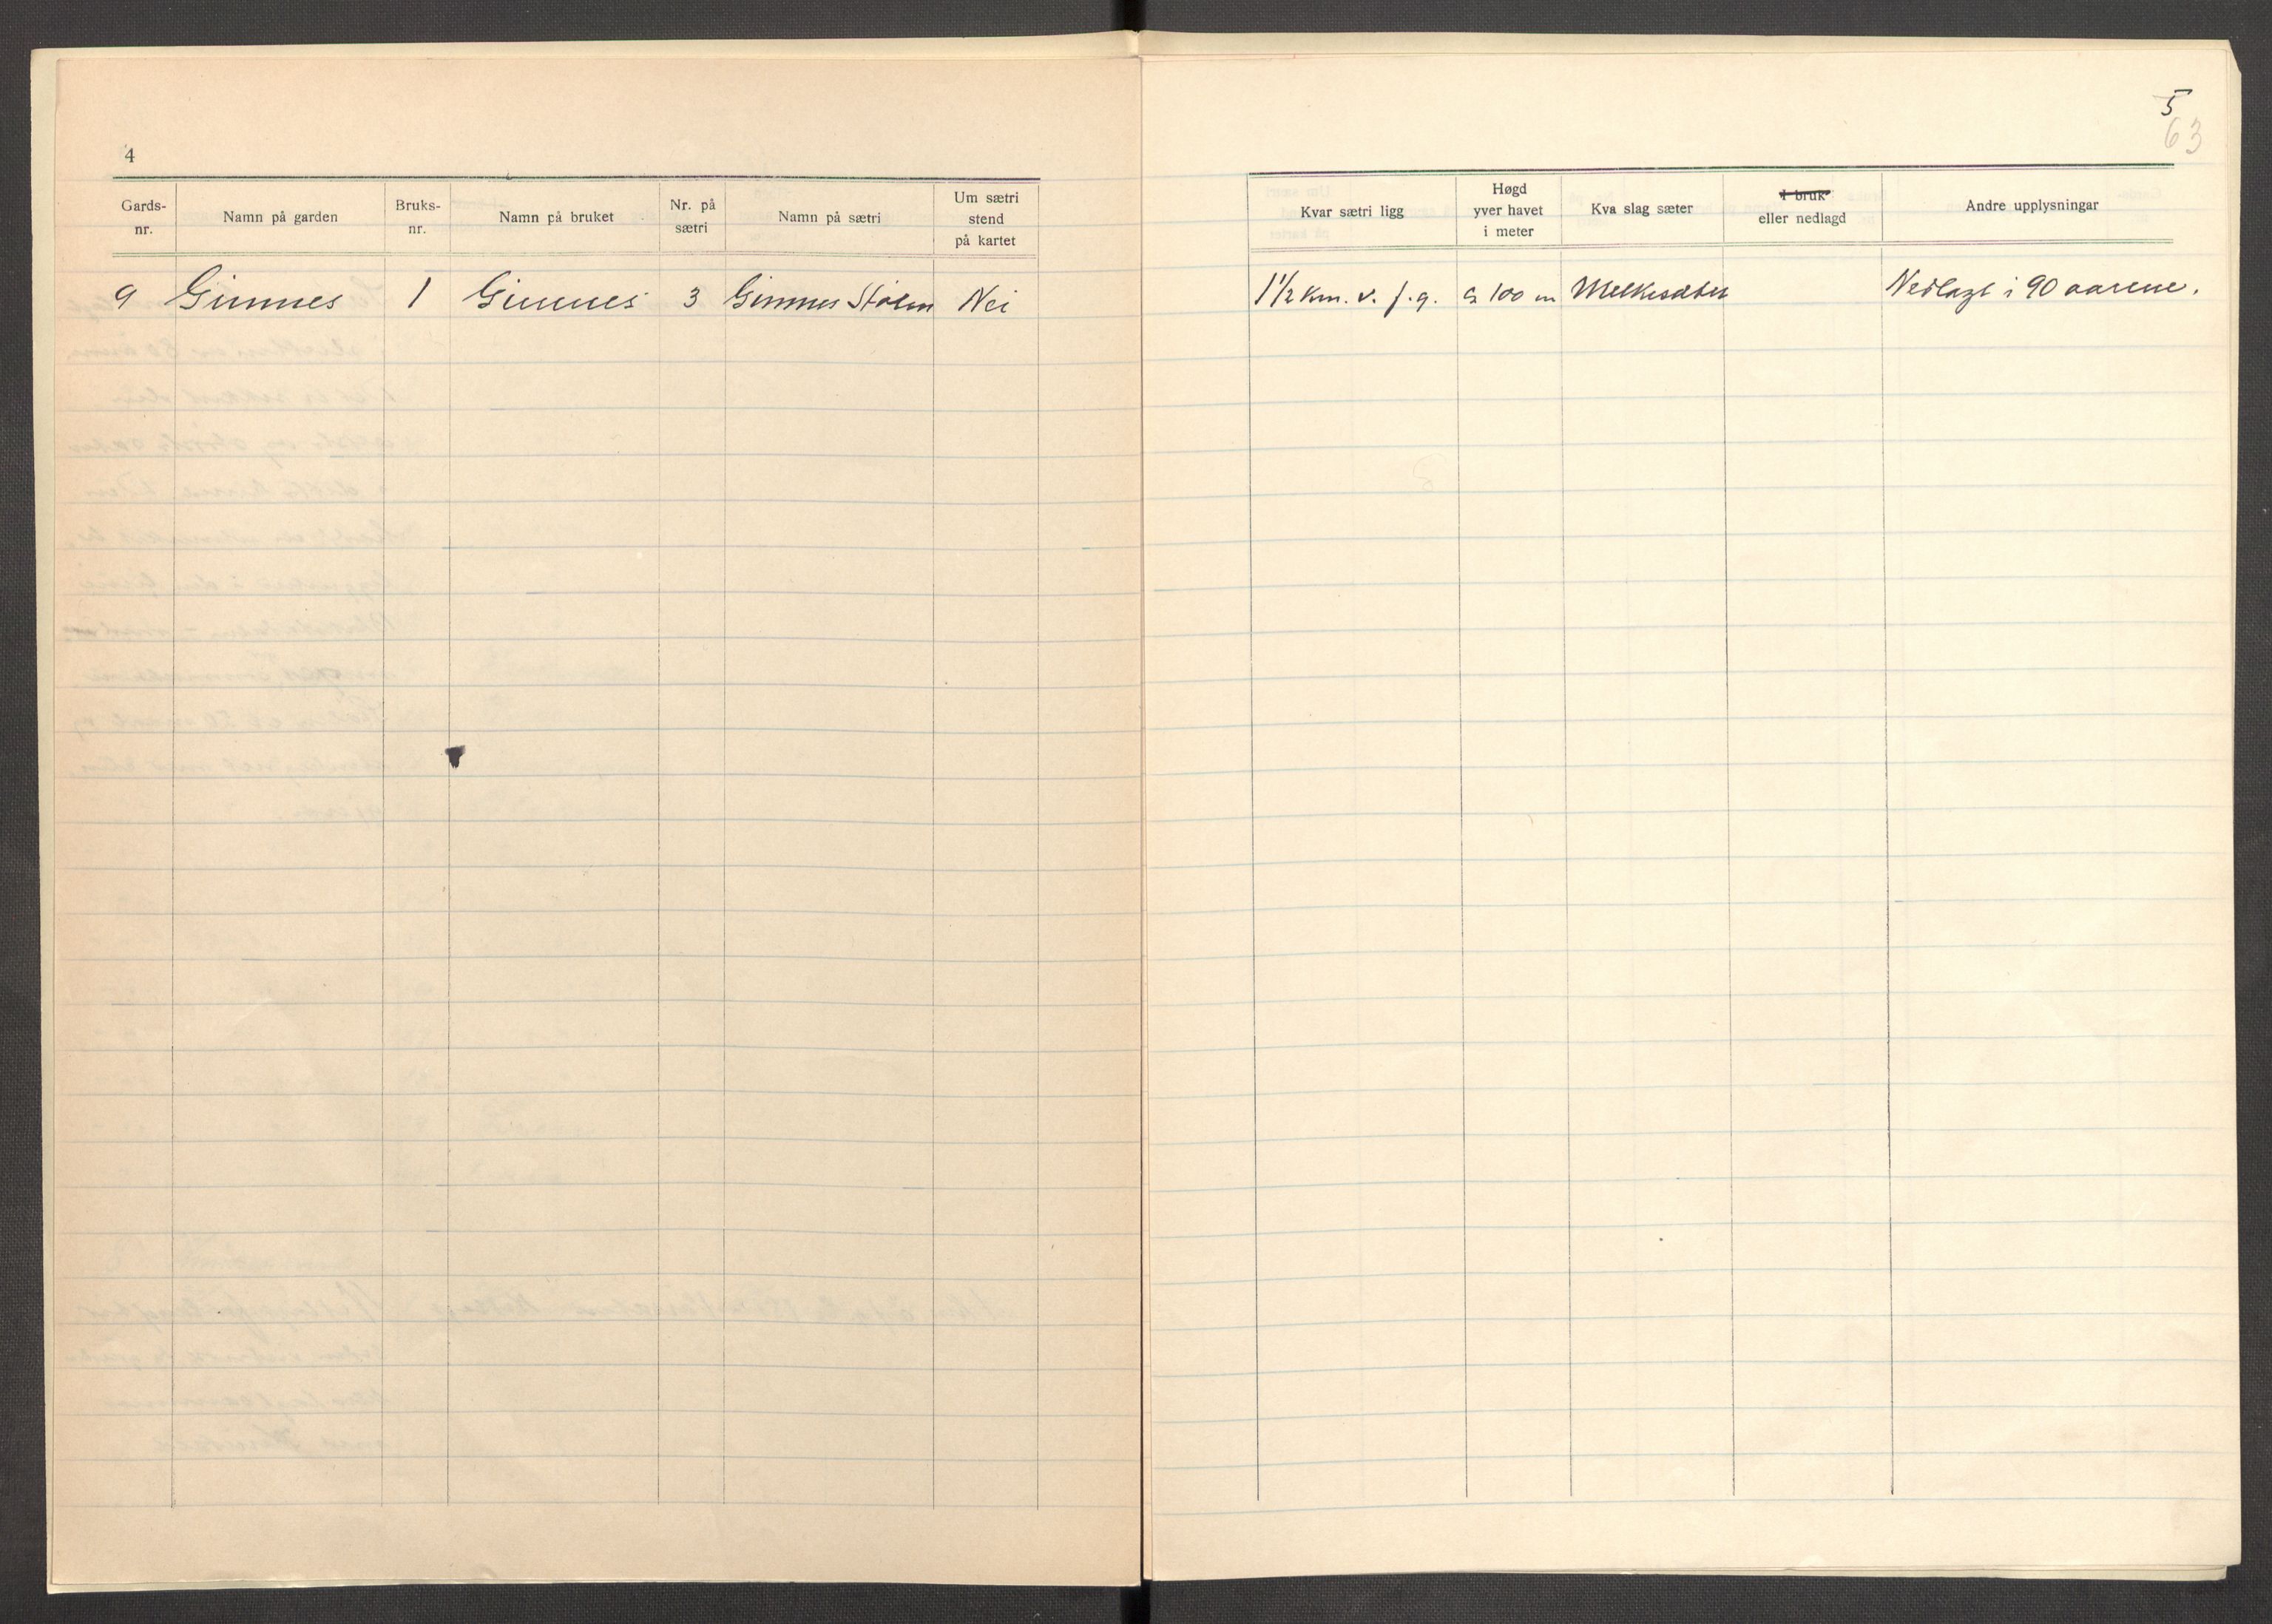 4
5
63
Gards-
nr.
Namn på garden
Bruks-
nr.
Namn på bruket
Nr. på
sætri
Namn på sætri
Um sætri
stend
på kartet
Kvar sætri ligg
Høgd
yver havet
i meter
Kva slag sæter
I bruk
eller nedlagd
Andre upplysningar
9 Gimnes 1 Gimnes 3 Gimnes Stølen Nei 1½ km. v. f. g. ca 100 m Melkesæter Nedlagt i 90 aarene.